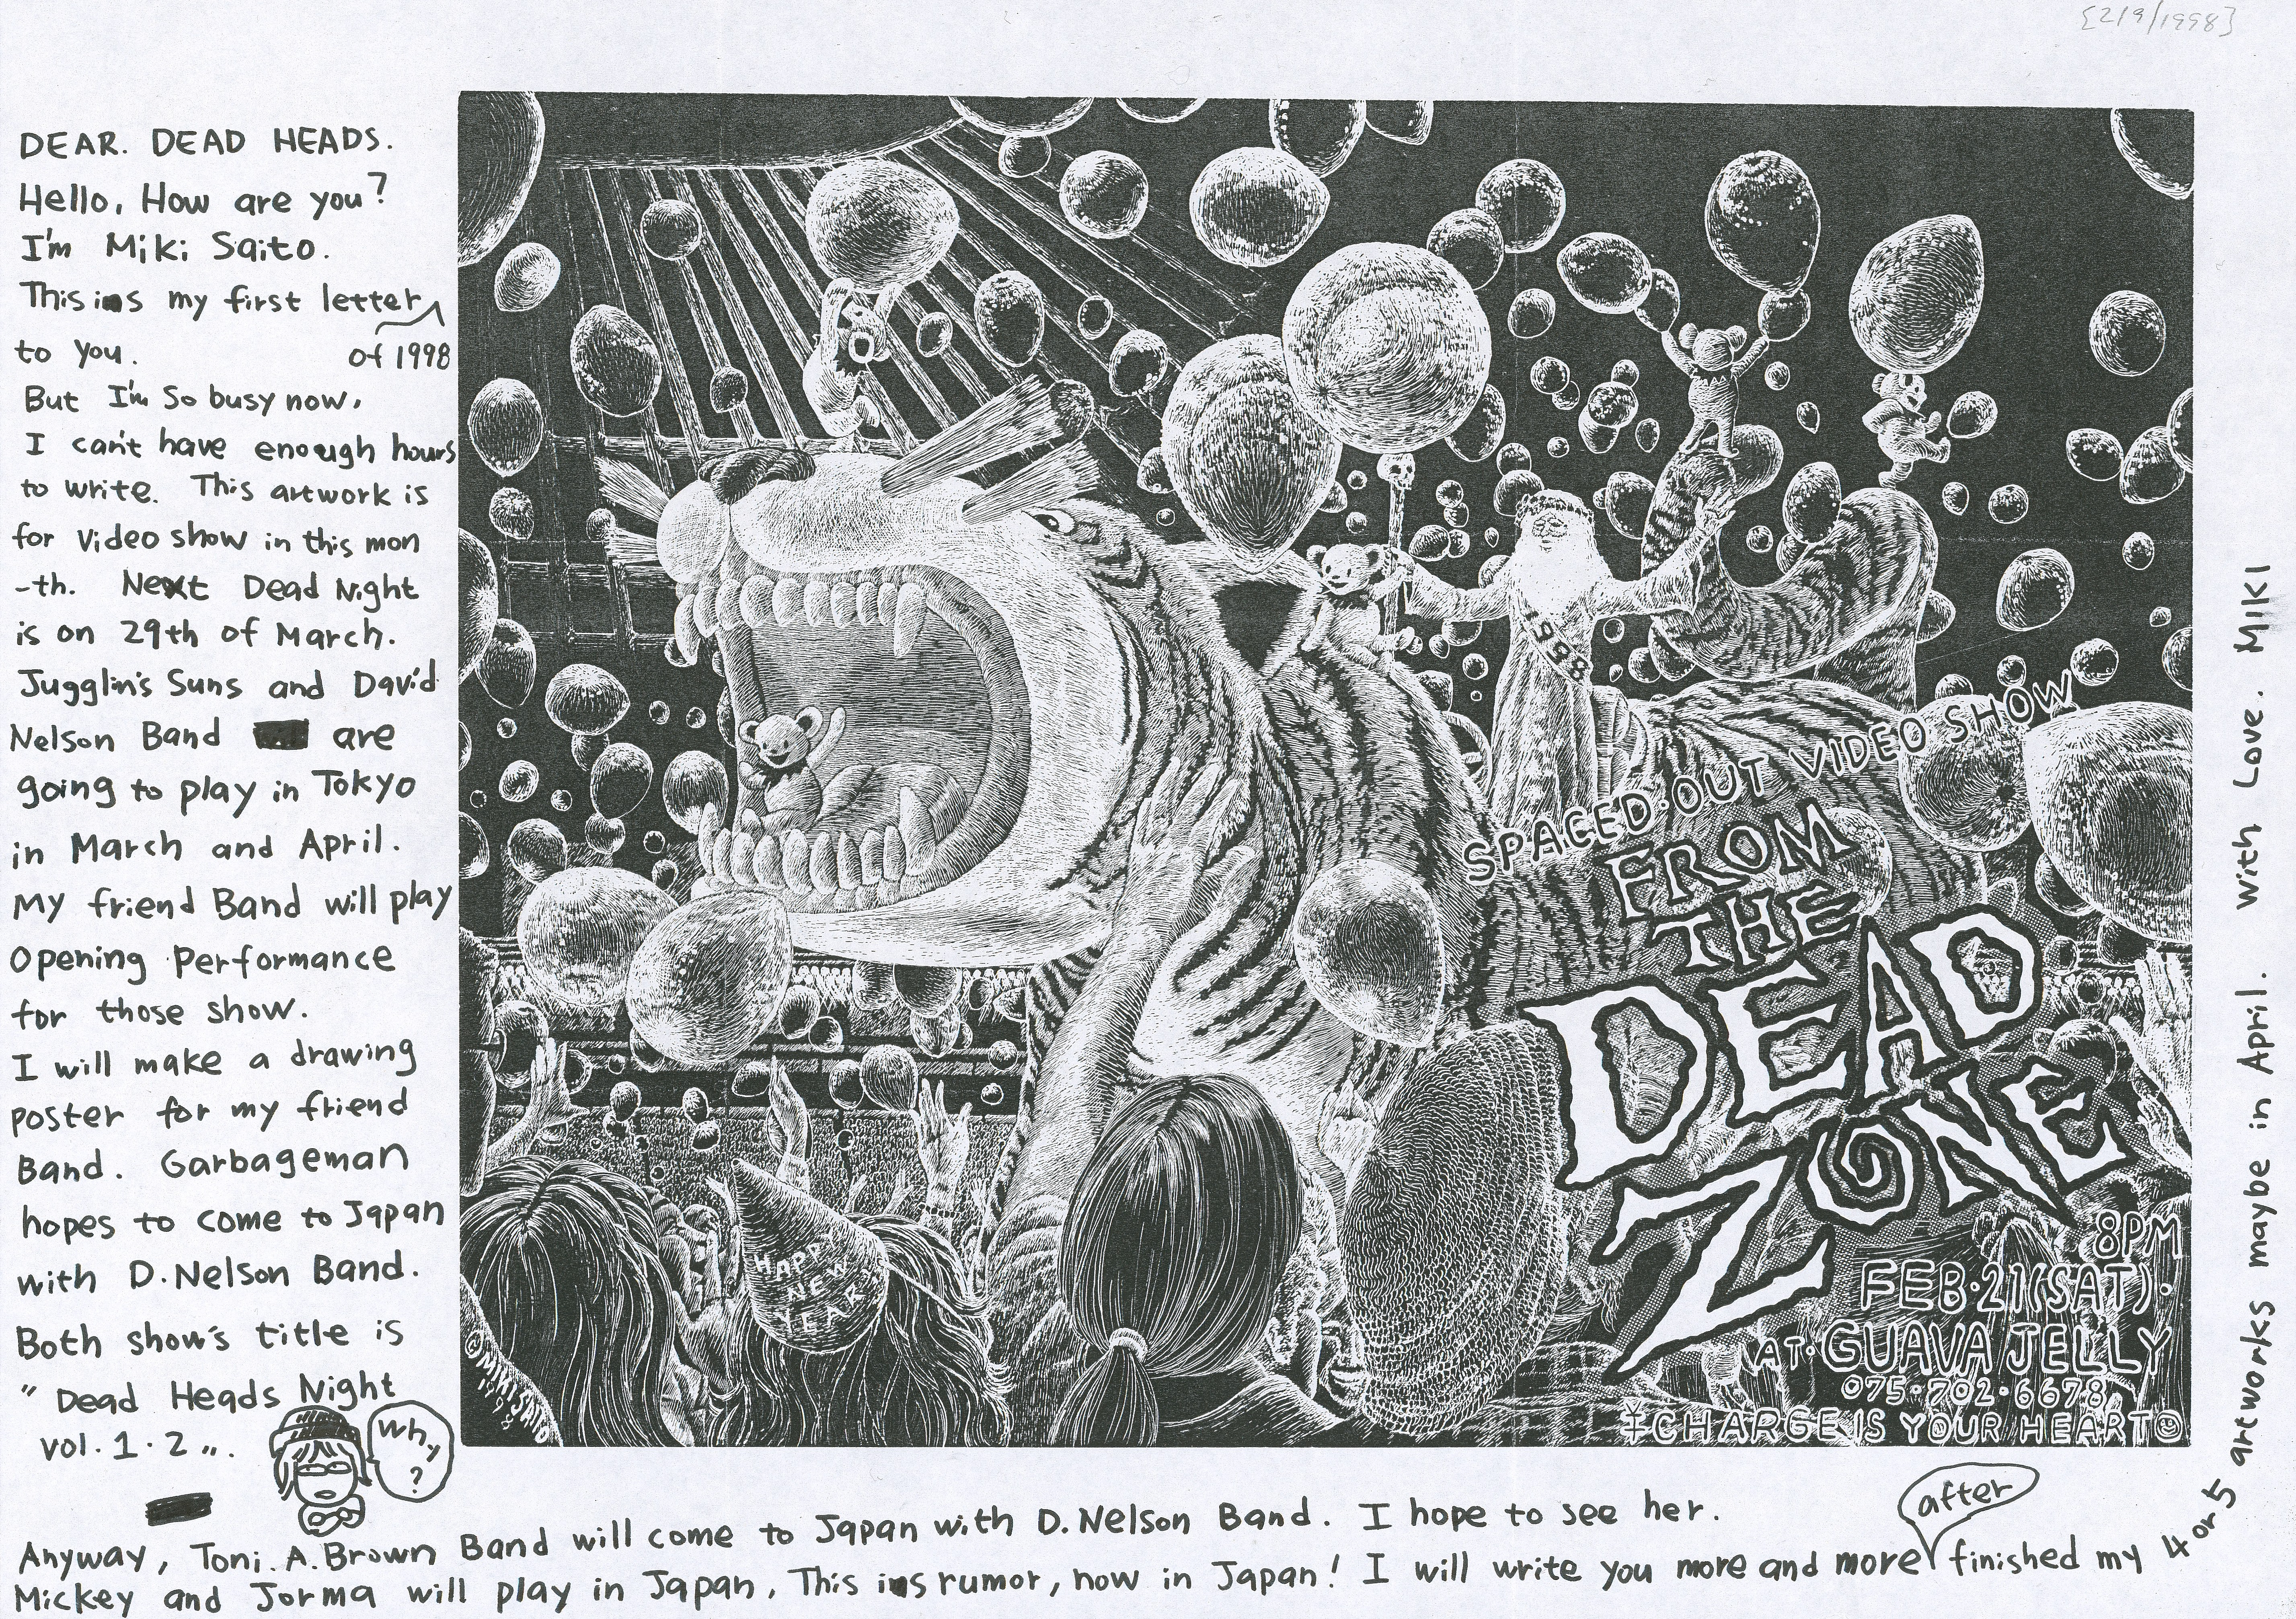 {2/9/1998}
DEAR. DEAD HEADS.
Hello, How are you?
I'm Miki Saito.
This is my first letter
to you. of 1998
But I'm so busy now,
I can't have enough hours
to write. This artwork is
for Video show in this mon
-th. Next Dead Night
is on 29th of March.
Jugglin's Suns and David
Nelson Band are
going to play in Tokyo
in March and April.
My friend Band will play
Opening Performance
for those show.
I will make a drawing
poster for my friend
Band. Garbageman
hopes to come to Japan
with D.Nelson Band.
Both show's title is
"Dead Heads Night
vol.1.2".
Why
?
Anyway, Toni.A.Brown Band will come to Japan with D.Nelson Band. I hope to see her.
Mickey and Jorma will play in Japan, This is rumor, now in Japan! I will write you more and more after finished my 4 or 5 artworks maybe in April. With Love. MIKI
1998
SPACED·OUT VIDEO SHOW
FROM
THE
DEAD
ZONE
8PM
FEB·21(SAT)·
AT·GUAVA JELLY
075·702·6678
¥CHARGE IS YOUR HEART☺
HAPPY
NEW
YEAR
©MIKI SAITO
1998